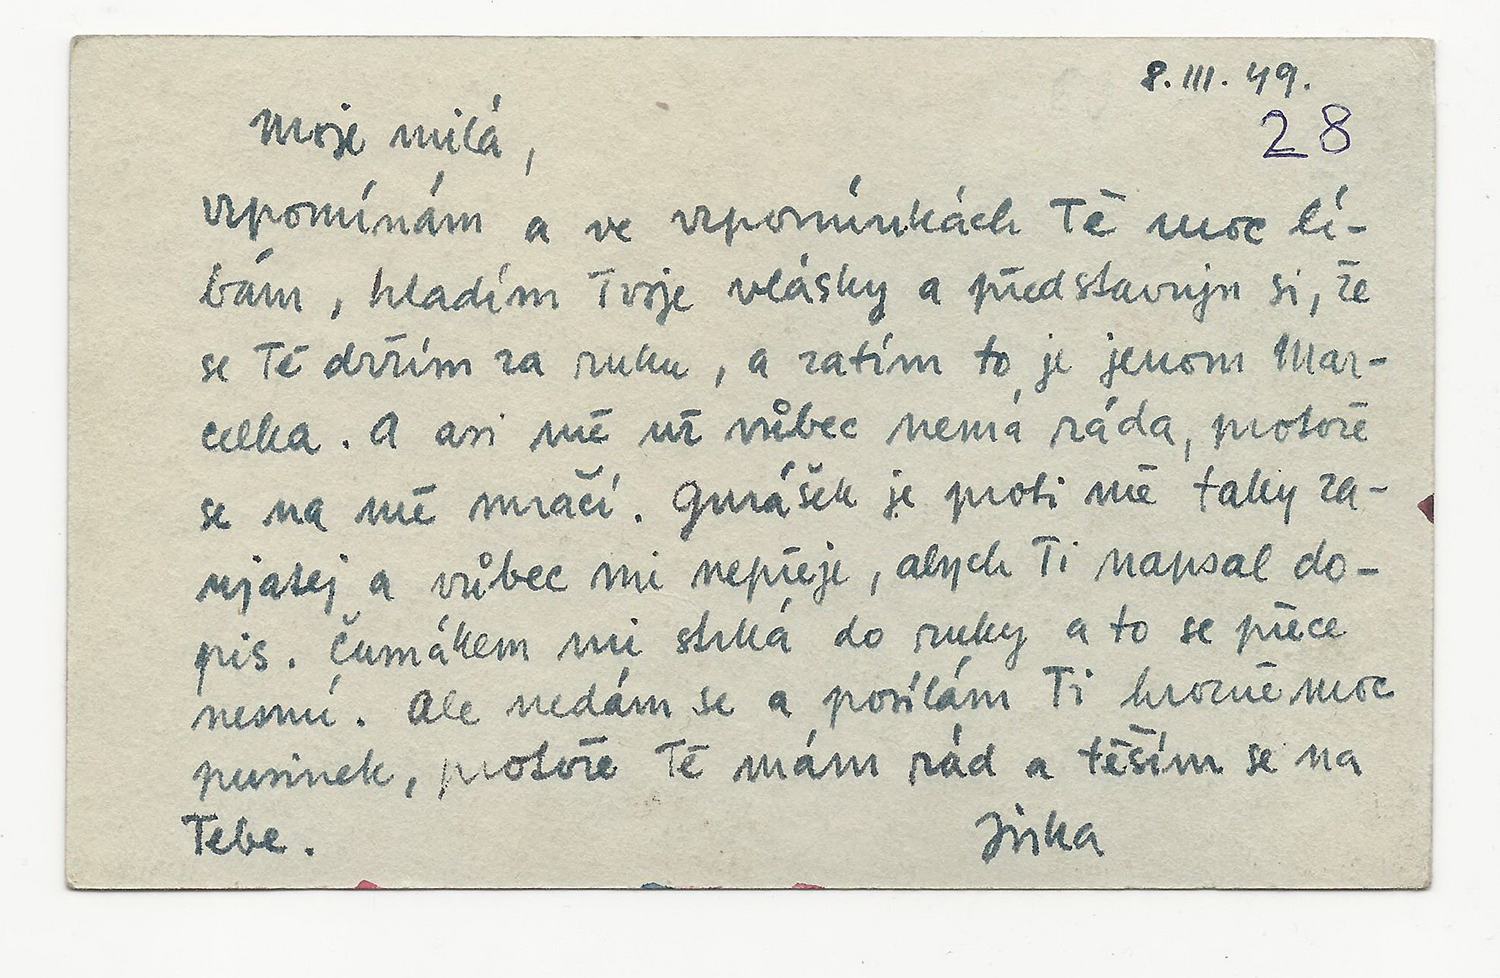 8.III.49.
28
Moje milá,
vzpomínám a ve vzpomínkách Tě moc lí-
bám, hladím Tvoje vlásky a představuju si, že
se Tě držím za ruku, a zatím to je jenom Mar-
celka. A asi mě už vůbec nemá ráda, protože
se na mě mračí. je proti mě taky za-
ujatej a vůbec mi nepřeje, abych Ti napsal do-
pis. Čumákem mi strká do ruky a to se přece
nesmí. Ale nedám se a posílám Ti hrozně moc
pusinek, protože Tě mám rád a těším se na
Tebe.
Jirka